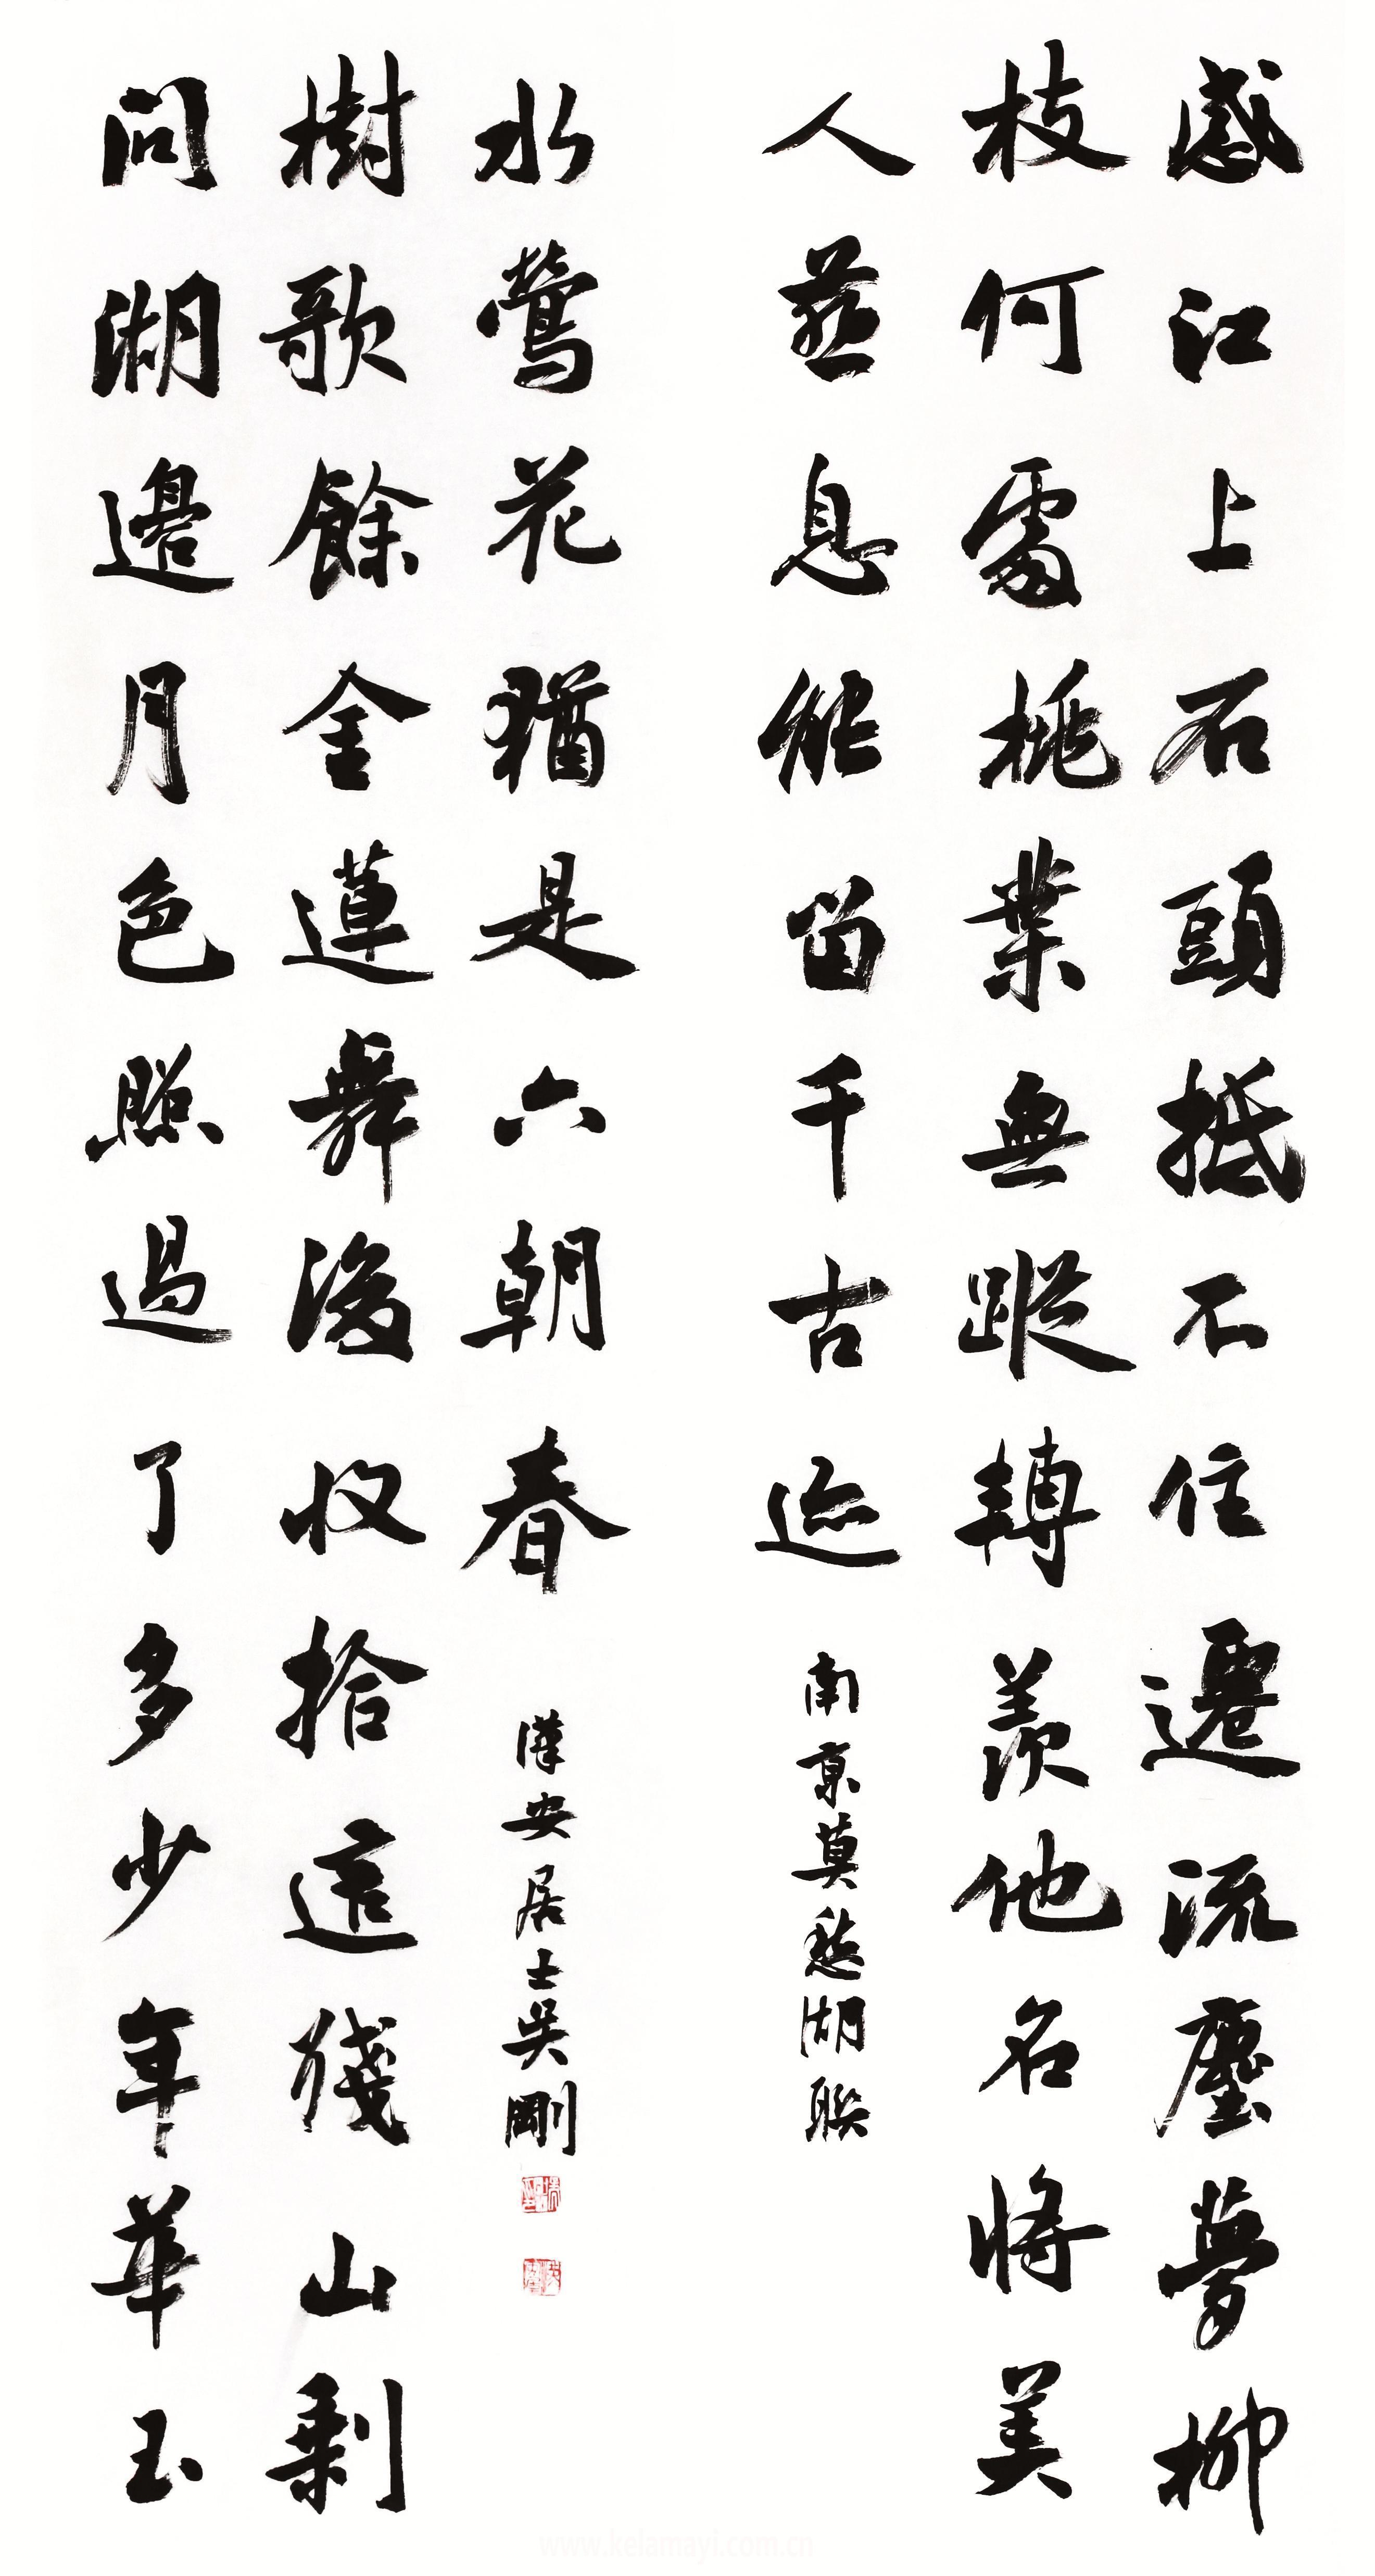 感江上石頭抵不住遷流塵夢柳
枝何處桃葉無蹤轉羨他名將美
人燕息能留千古迹
南京莫愁湖聯
問湖邊月色照過了多少年華玉
樹歌餘金蓮舞後收拾這殘山剩
水鶯花猶是六朝春
漢安居士吳剛
www.kelamayi.com.cn